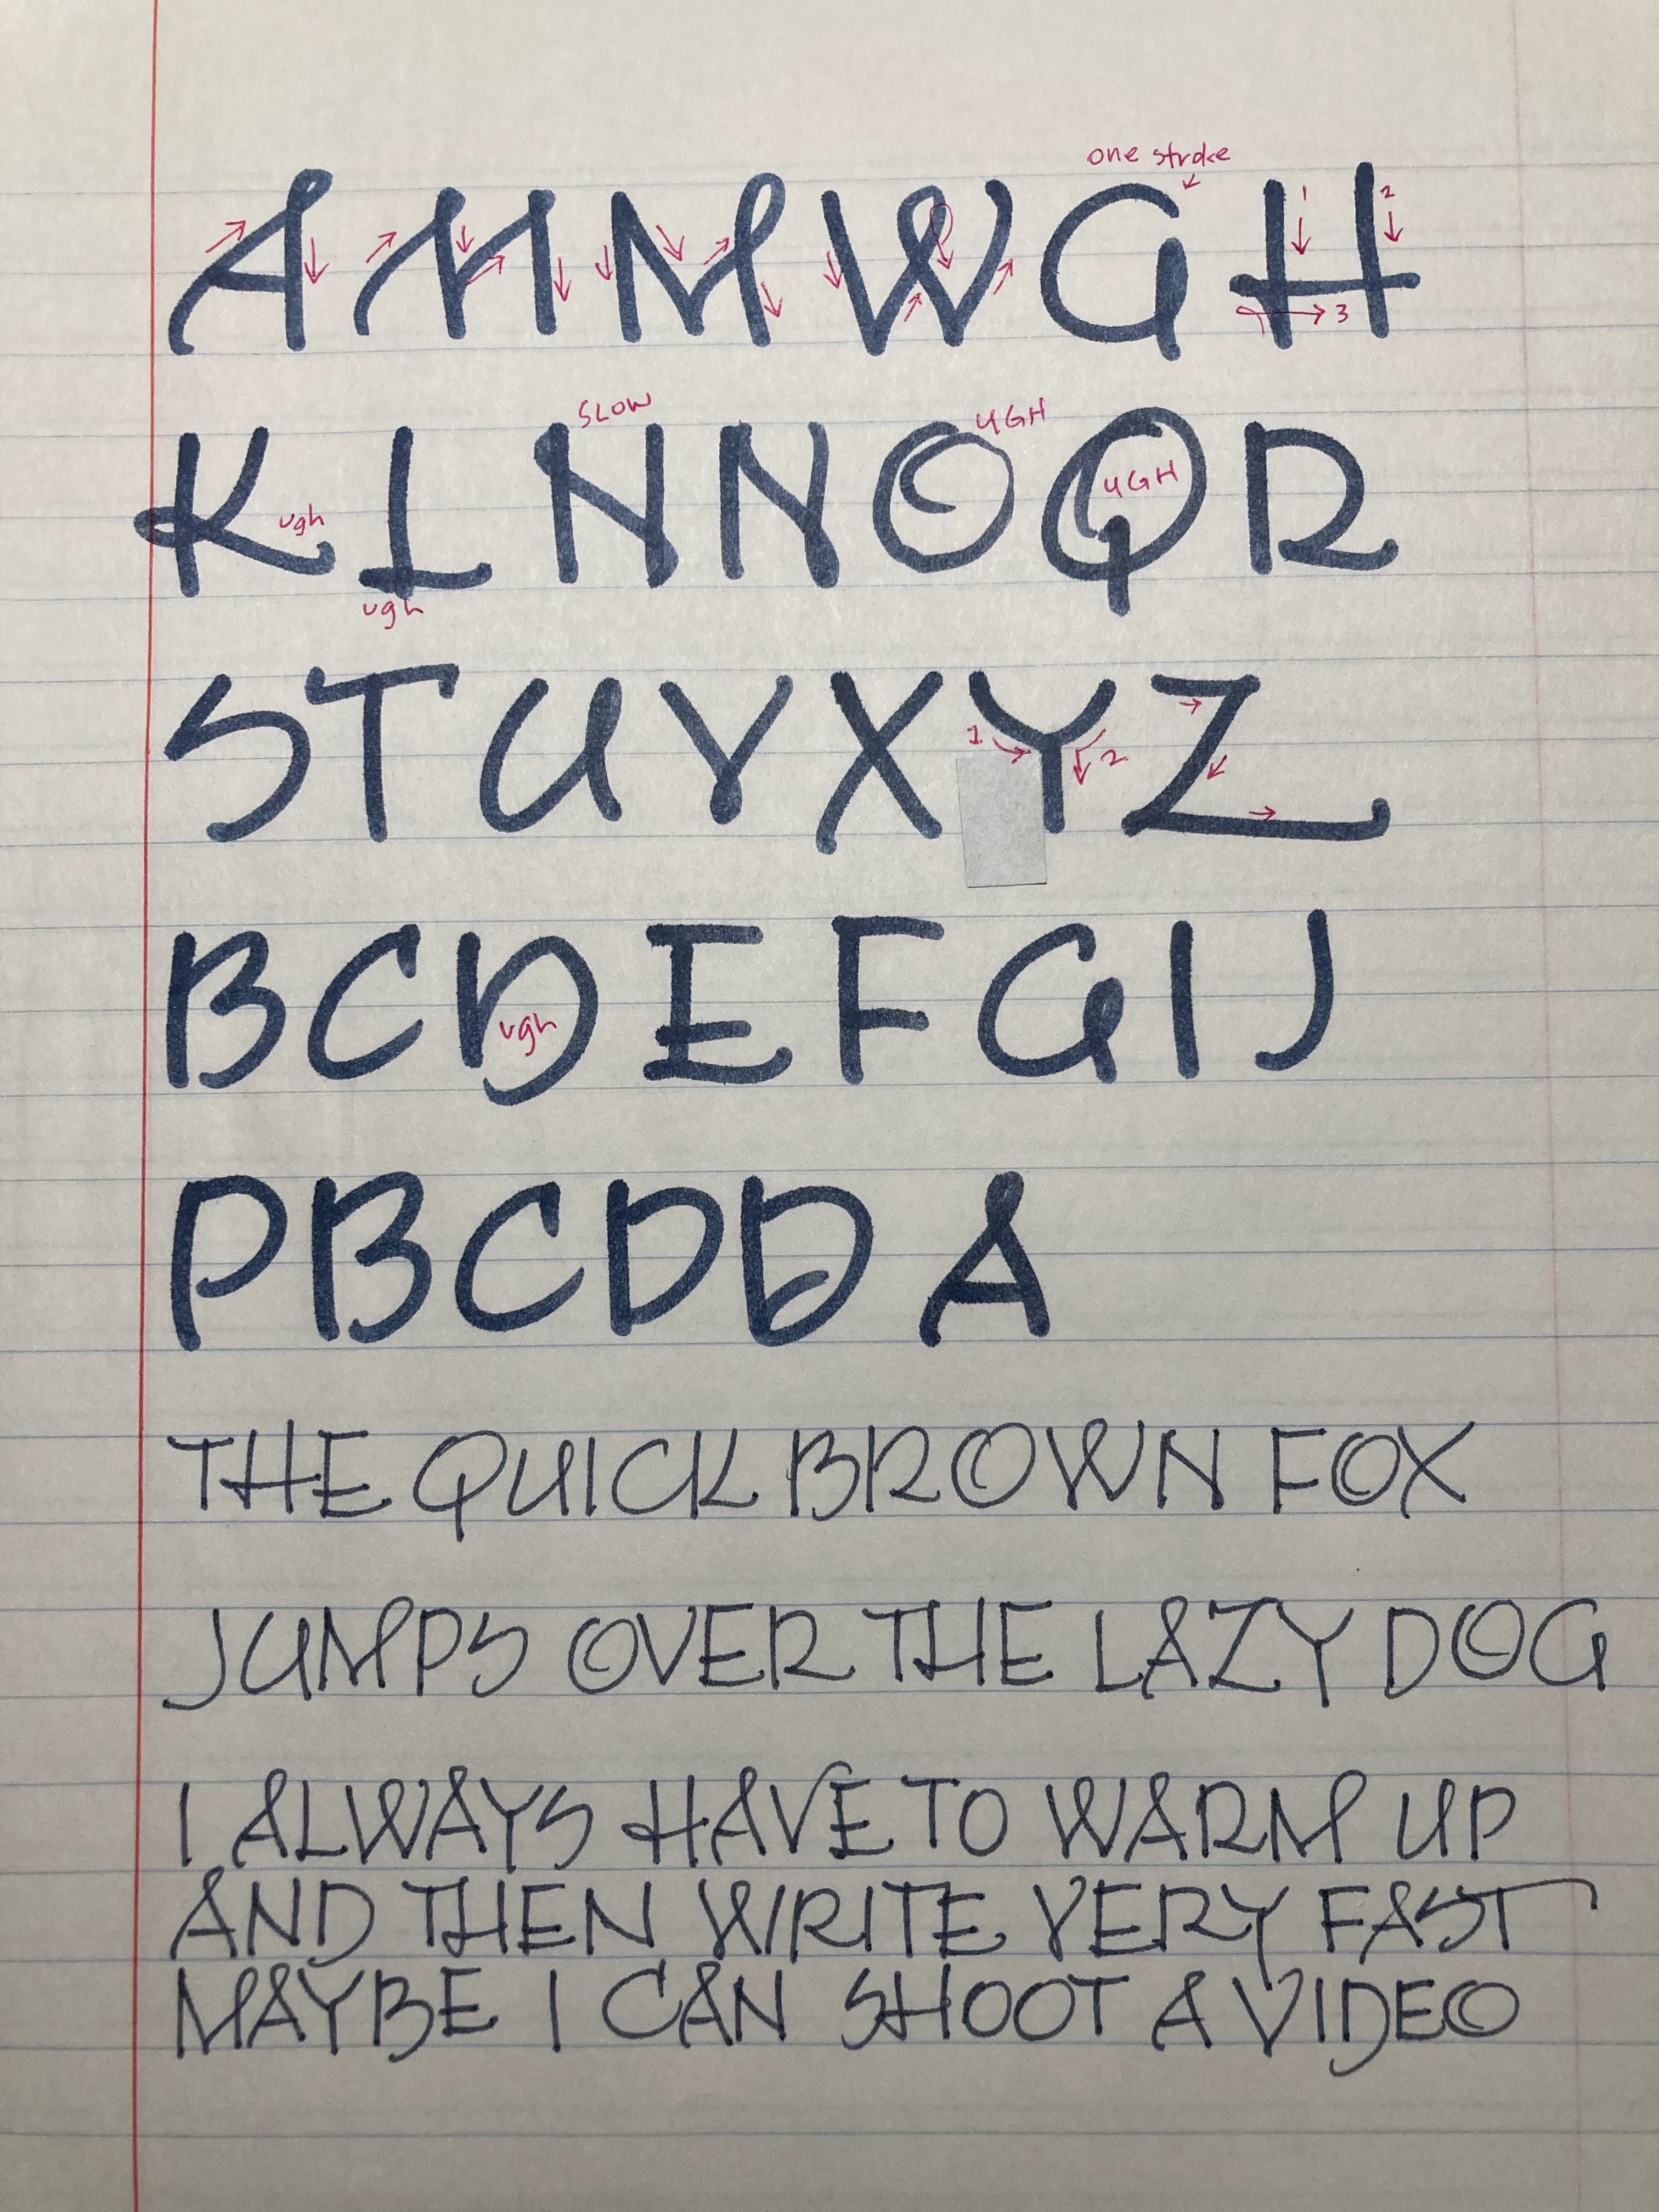 one stroke
A M M W G H
1 2 3
SLOW UGH
K L N N O Q R
ugh UGH
ugh
S T U V X Y Z
1 2
B C D E F G I J
ugh
P B C D D A
THE QUICK BROWN FOX
JUMPS OVER THE LAZY DOG
I ALWAYS HAVE TO WARM UP
AND THEN WRITE VERY FAST
MAYBE I CAN SHOOT A VIDEO